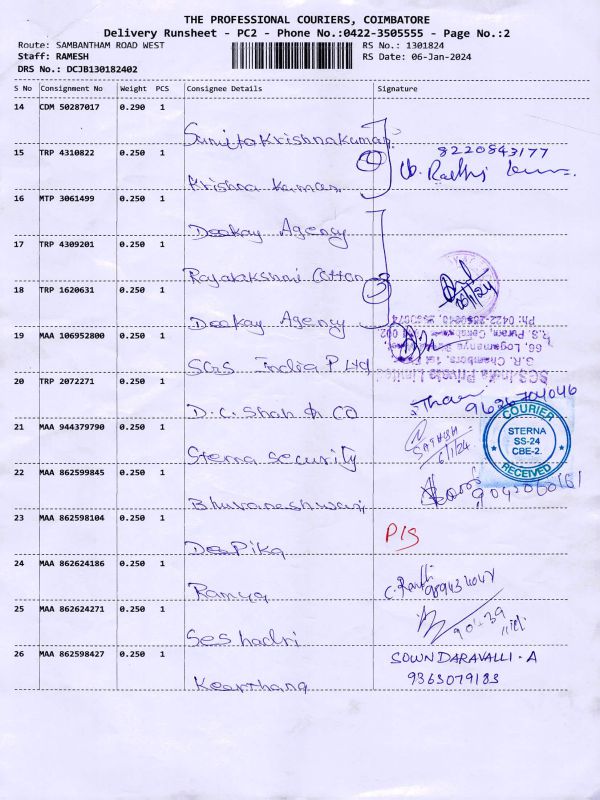 THE PROFESSIONAL COURIERS, COIMBATORE
Delivery Runsheet - PC2 - Phone No.:0422-3505555 - Page No.:2
Route: SAMBANTHAM ROAD WEST RS No.: 1301824
Staff: RAMESH RS Date: 06-Jan-2024
DRS No.: DCJB130182402
S No Consignment No Weight PCS Consignee Details Signature
14 CDM 50287017 0.290 1
Sumita Krishnakumar
15 TRP 4310822 0.250 1 8220843177
Krishna Kumar
16 MTP 3061499 0.250 1
Deekay Agency
17 TRP 4309201 0.250 1
Rajalakshmi Cotton
18 TRP 1620631 0.250 1
Deekay Agency
19 MAA 106952800 0.250 1
SGS India P Ltd
SGS India Private Limited
20 TRP 2072271 0.250 1
D.C. Shah & CO
21 MAA 944379790 0.250 1 SATHISH
6/1/24
COURIER
STERNA
SS-24
CBE-2.
RECEIVED
Sterna Security
22 MAA 862599845 0.250 1
Bhuvaneshwari
23 MAA 862598104 0.250 1 P/S
DeePika
24 MAA 862624186 0.250 1
Ramya
25 MAA 862624271 0.250 1
Seshadri
26 MAA 862598427 0.250 1 SOWNDARAVALLI - A
9363079183
Keerthana